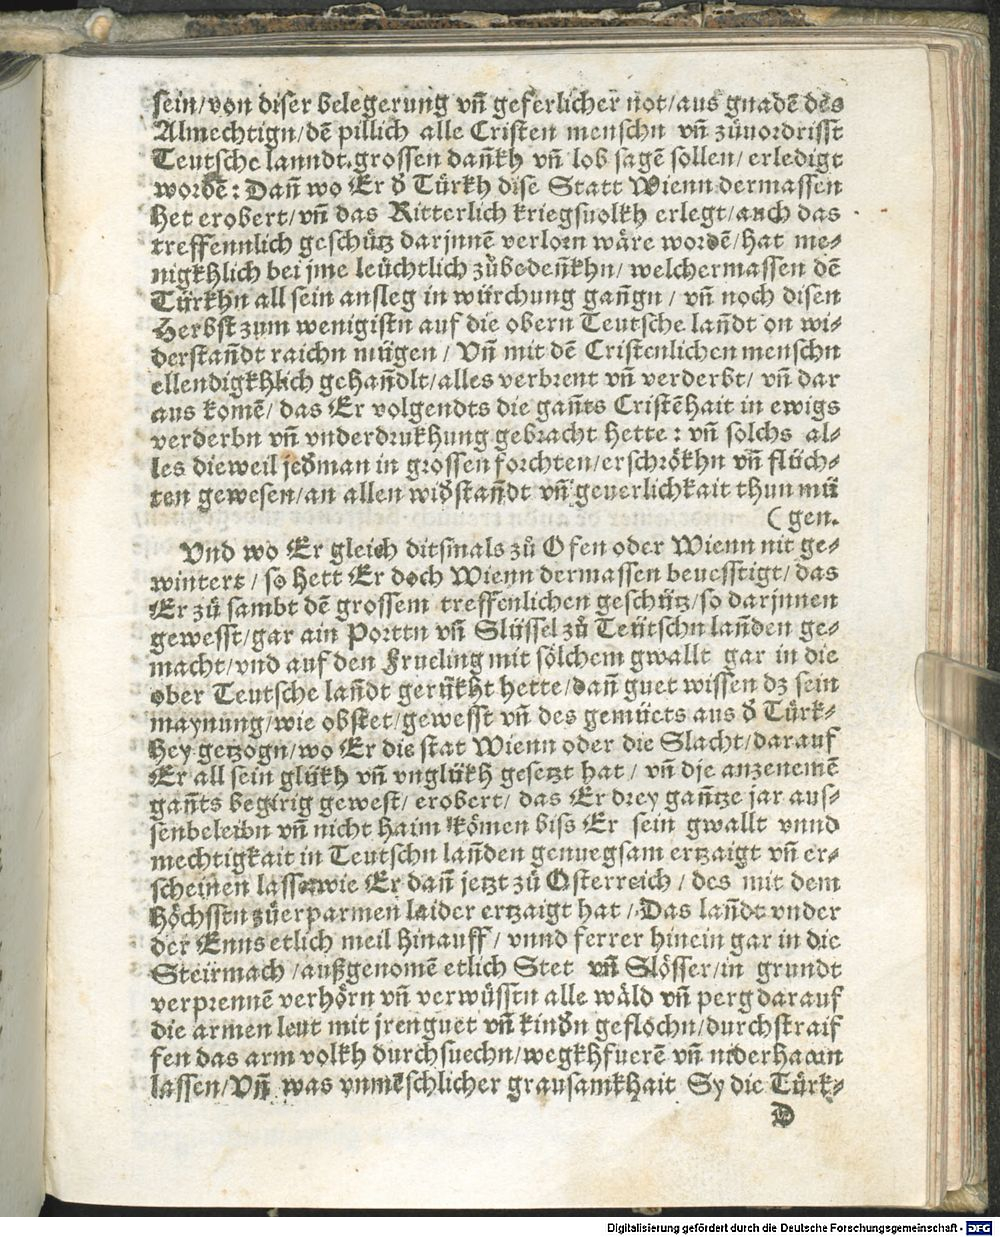 sein/von diser belegerung vñ geferlicher not/aus gnadē des
Almechtign/dē pillich alle Cristen menschn vñ zůuordrisst
Teutsche lanndt.grossen dañkh vñ lob sagē sollen/erledigt
wordē: Dañ wo Er ď Türkh dise Statt Wienn dermassen
het erobert/vñ das Ritterlich kriegsuolkh erlegt/auch das
treffennlich geschütz darjnnē verlorn wäre wordē/hat me⸗
nigkhlich bei jme leüchtlich zůbedeñkhn/welchermassen dē
Türkhn all sein ansleg in würchung gañgn/vñ noch disen
Herbst zum wenigistn auf die obern Teutsche lañdt on wi⸗
derstañdt raichn mügen/Vñ mit dē Cristenlichen menschn
ellendigkhlich gehañdlt/alles verbrent vñ verderbt/vñ dar
aus komē/das Er volgendts die gañts Cristēhait in ewigs
verderbn vñ vnderdrukhung gebracht hette: vñ solchs al⸗
les dieweil jeďman in grossen forchten/erschrökhn vñ flüch⸗
ten gewesen/an allen wiďstañdt vñ geuerlichkait thun mü
(gen.
Vnd wo Er gleich ditsmals zů Ofen oder Wienn nit ge⸗
wintert/so hett Er doch Wienn dermassen beuesstigt/das
Er zů sambt dē grossem treffenlichen geschütz/so darjnnen
gewesst/gar ain Porttn vñ Slüssel zů Teütschn lañden ge⸗
macht/vnd auf den Frueling mit sölchem gwallt gar in die
ober Teutsche lañdt gerükht hette/dañ guet wissen dz sein
maynung/wie obstet/gewesst vñ des gemüets aus ď Türk⸗
hey getzogn/wo Er die stat Wienn oder die Slacht/darauf
Er all sein glükh vñ vnglükh gesetzt hat/vñ die anzenemē
gañts begirig gewest/erobert/das Er drey gañtze jar aus⸗
senbeleibn vñ nicht haim kömen biss Er sein gwallt vnnd
mechtigkait in Teutschn lañden genuegsam ertzaigt vñ er⸗
scheinen lassen wie Er dañ jetzt zů Osterreich/des mit dem
höchsstn zůerparmen laider ertzaigt hat/Das lañdt vnder
der Enns etlich meil hinauff/vnnd ferrer hinein gar in die
Steirmach/außgenomē etlich Stet vñ Slösser/in grundt
verprennē verhörn vñ verwüsstn alle wäld vñ perg darauf
die armen leut mit jren guet vñ kinďn geflochn/durchstraif
fen das arm volkh durchsuechn/wegkhfuerē vñ niderhawn
lassen/Vñ was vnmēschlicher grausamkhait Sy die Türk⸗
D
Digitalisierung gefördert durch die Deutsche Forschungsgemeinschaft - DFG